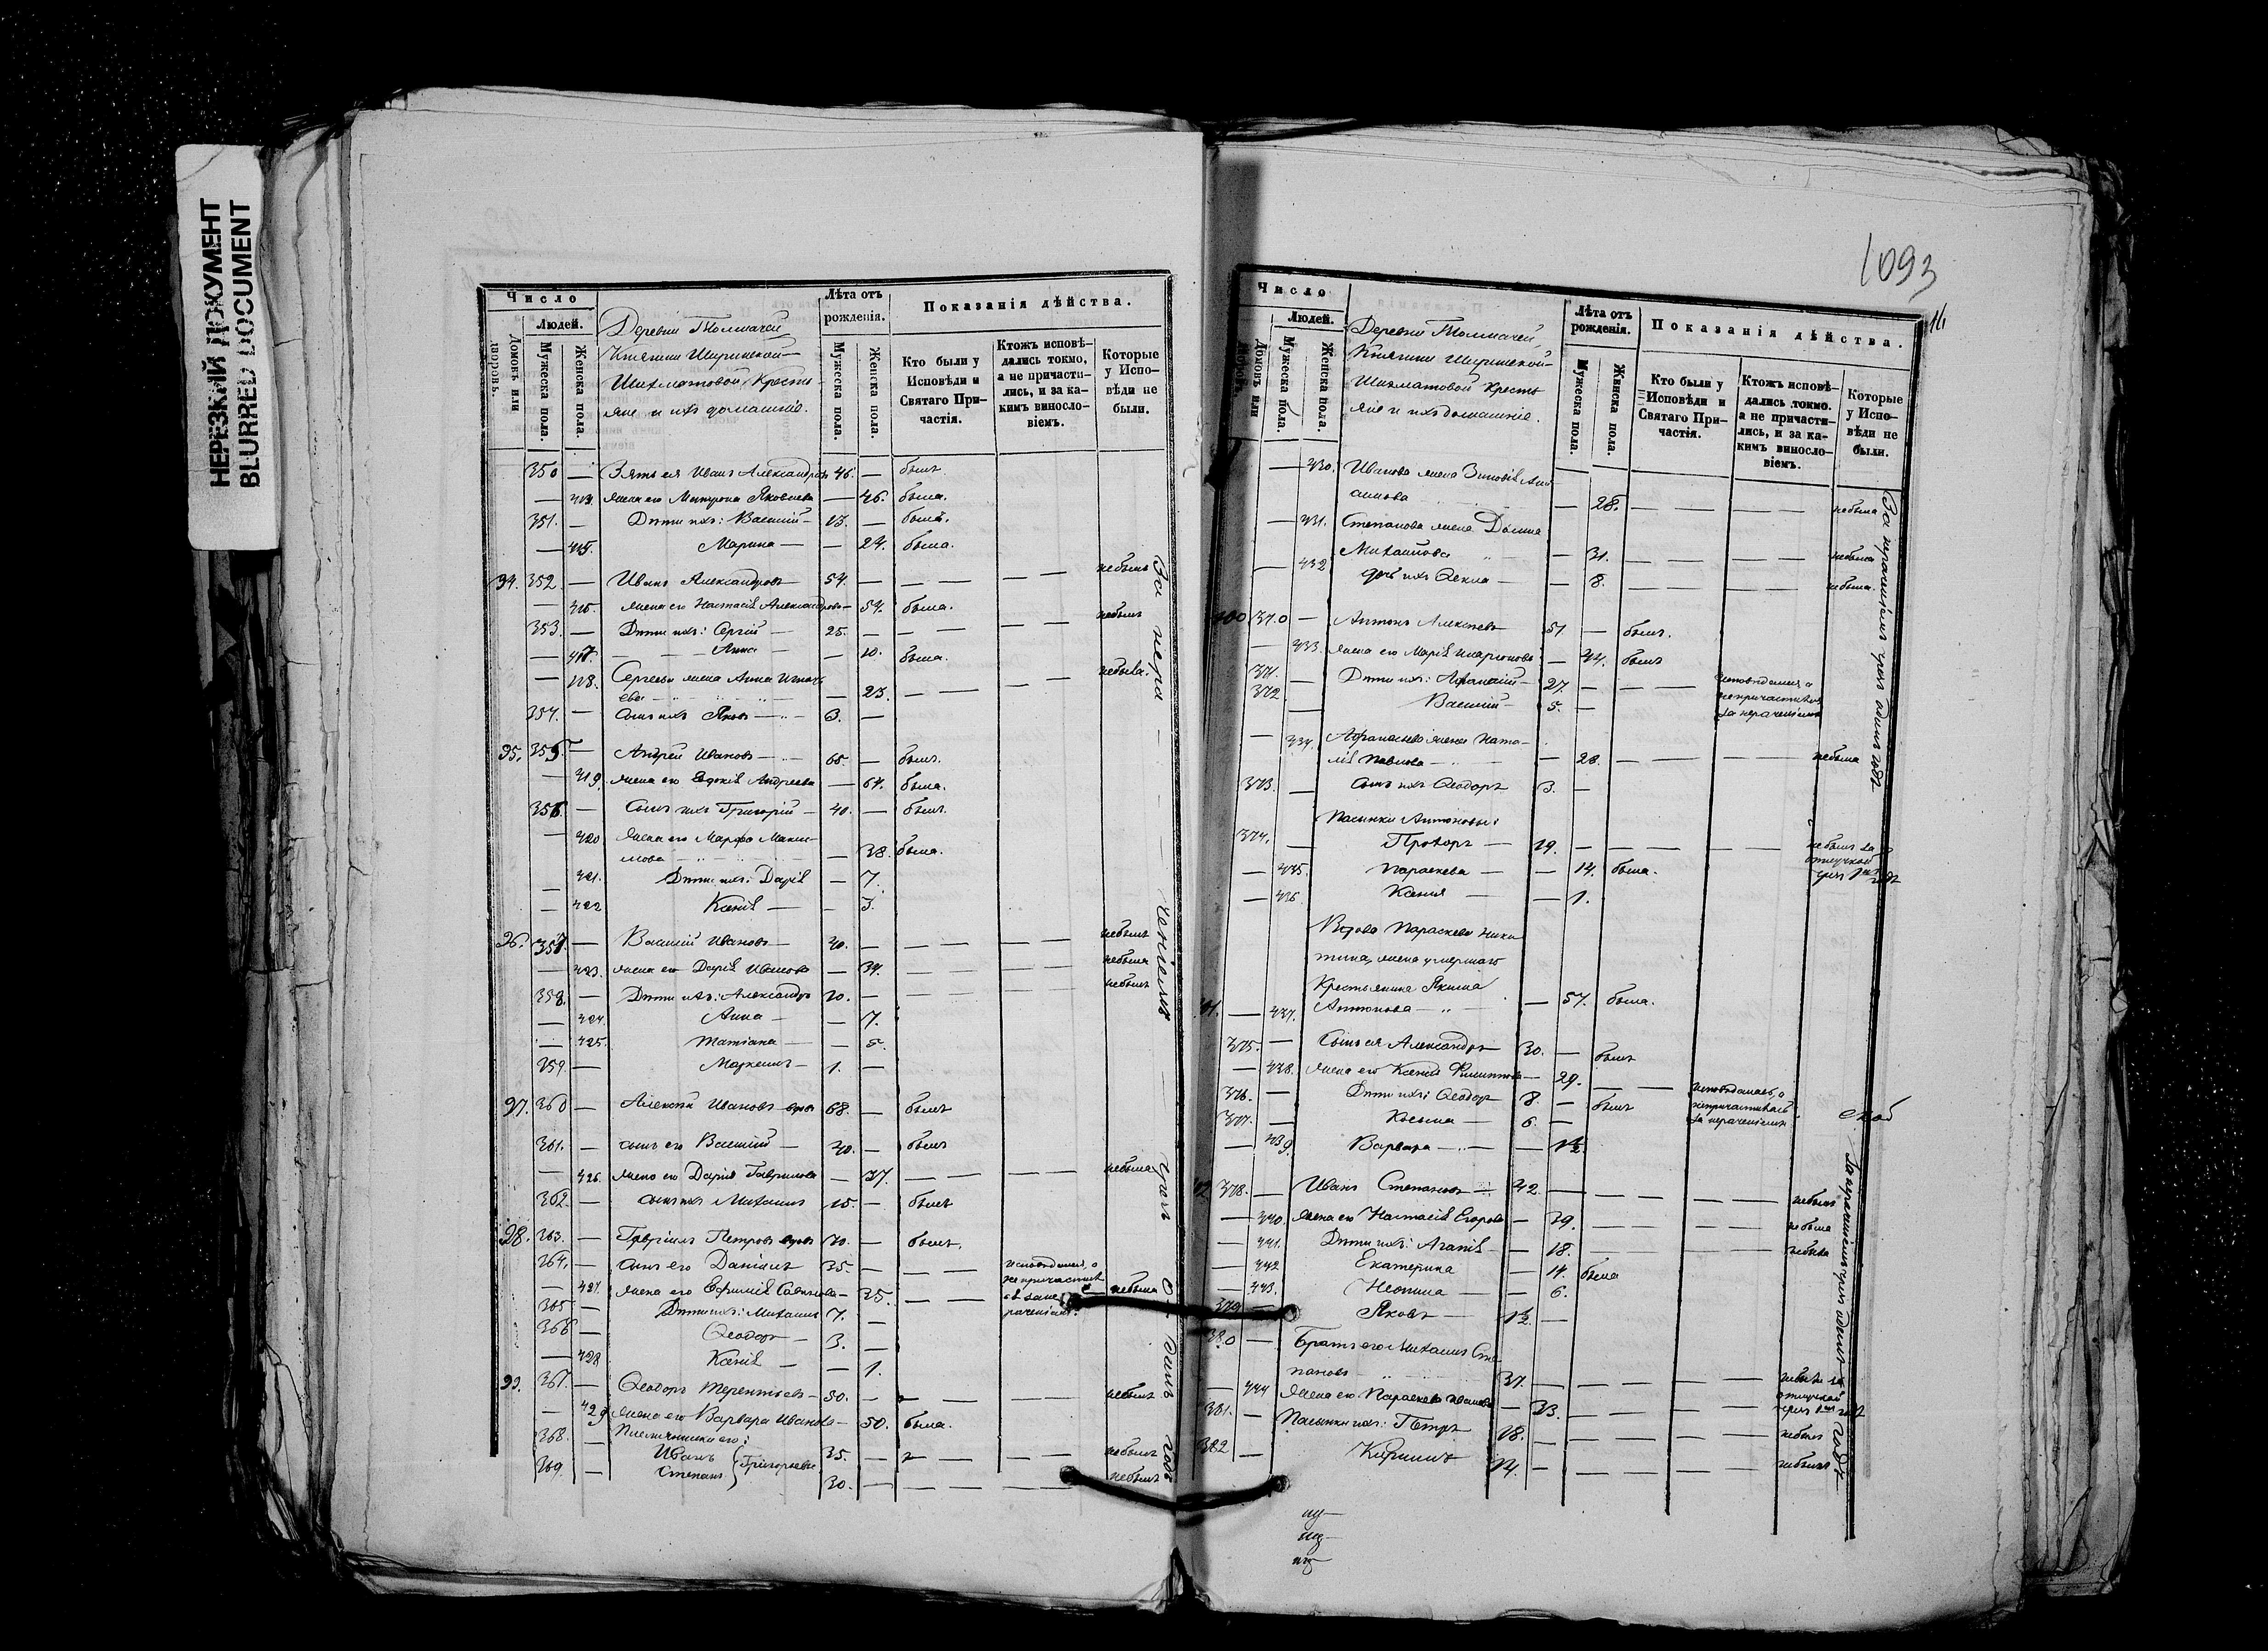 НЕРЕЗКИЙ ДОКУМЕНТ
BLURRED DOCUMENT
Число
Людей.
Домовъ или дворовъ.
Мужеска пола.
Женска пола.
Деревни Толмачей,
Княгини Ширинской-
Шихматовой Кресть-
яне и ихъ домашніе.
Лѣта отъ рожденія.
Мужеска пола.
Женска пола.
Показанія дѣйства.
Кто были у Исповѣди и Святаго Причастія.
Ктожъ исповѣдались токмо, а не причастились, и за какимъ винословіемъ.
Которые у Исповѣди не были.
350 — Зять ея Иванъ Александровъ 46. — былъ.
— жена его Яковлева — 46. была.
351. — Дѣти ихъ: Василій — 13. — былъ.
— 415. Марина — — 24. была.
94. 352 — Иванъ Александровъ 54. — — — — — небылъ
— 416. жена его Настасія Александрова — 54. была.
353. — Дѣти ихъ: Сергій — 25. — — — — — небылъ
— 417. Анна — — 10. была.
— 418. Сергеева жена Анна Игнать-
ева — 23. — — — — небыла.
354. — сынъ ихъ Яковъ — 3. —
95. 355. — Андрей Ивановъ — 65. — былъ.
— 419. жена его Евдокія Андреева — 64. была.
356. — сынъ ихъ Григорій — 40. — былъ.
— 420 жена его Марфа Макси-
мова — 38. была.
— 421. Дѣти ихъ: Дарія — 7.
— 422 Ксенія — — 3.
96. 357. — Василій Ивановъ — 40. — — — — — небылъ
— 423. жена его Дарія Иванова — 34. — — — — небыла
358. — Дѣти ихъ: Александръ 10. — — — — — небылъ
— 424. Анна — — 7.
— 425. Татіана — — 5.
359 — Маркеллъ — 1. —
97. 360 — Алексѣй Ивановъ вдовъ 68. — былъ
361. — сынъ его Василій — 40. — былъ
— 426. жена его Дарія Гаврилова — 37. — — — — небыла
362 — сынъ ихъ Михаилъ 15. — былъ
98. 363. — Гавріилъ Петровъ вдовъ 70. — былъ.
364. — сынъ его Даніилъ 35. — — — исповѣдался, а
не причастил
ся за не
раченіемъ.
— 427. жена его Ефимія Савельева — 35. — — небыла
365 — Дѣти ихъ: Михаилъ 7. —
366 — Ѳеодоръ — 3. —
— 428 Ксенія — — 1.
99. 367. — Ѳеодоръ Терентьевъ — 50. — — — — небылъ
— 429 жена его Варвара Иванова — 50. была.
Племянники его:
368. — Иванъ } Григорьевы 35. — — — — небылъ
369. — Степанъ 30. — — — — — небылъ
За нера — ченіемъ — чрезъ одинъ годъ
1093
16
Число
Людей.
Домовъ или дворовъ.
Мужеска пола.
Женска пола.
Деревни Толмачей,
Княгини Ширинской-
Шихматовой Кресть-
яне и ихъ домашніе.
Лѣта отъ рожденія.
Мужеска пола.
Женска пола.
Показанія дѣйства.
Кто были у Исповѣди и Святаго Причастія.
Ктожъ исповѣдались токмо, а не причастились, и за какимъ винословіемъ.
Которые у Исповѣди не были.
— 430. Иванова жена Зиновія
— 28. — — — — небыла
— 431. Степанова жена Домна
Михайлова — 31. — — — — небыла
— 432 дочь ихъ Ѳекла — — 8. — — — — небыла.
100 370 — Антонъ Алексѣевъ 51 — былъ.
— 433. жена его Марія Иларіонова — 44. былъ
371. — Дѣти ихъ: Афанасій — 27. — — — исповѣдался, а
непричастился
за нераченіемъ
372 — Василій — 5. —
— 434. Афанасьева жена Ната-
лія Павлова — — 28. — — — — небыла
373. — сынъ ихъ Ѳеодоръ 3. —
Пасынки Антоновы:
374. — Прохоръ — 19. — — — — — небылъ за
отлучкой
— 435. Параскева — — 14. была.
— 436 Ксенія — — 1.
Вдова Параскева Ники-
тина, жена умершаго
Крестьянина Якима
101. — 437. Антонова — — 57. была.
375. — Сынъ ея Александръ 30. — былъ
— 438. жена его Ксенія Филиппова — 29. — — исповѣдалась, а
непричастилась
за нераченіемъ
376. — Дѣти ихъ: Ѳеодоръ 8. — былъ
377. — Косьма — 6. —
— 439 Варвара — — 1½
102 378. — Иванъ Степановъ — 42. — — — — — небылъ
— 440. жена его Настасія Егорова — 39. — — — — небыла
— 441. Дѣти ихъ: Агапія — — 18. — — — — небыла
— 442 Екатерина — 14. была
— 443. Неонила — — 6.
379 — Яковъ — 1½ —
380 — Братъ его Михаилъ Сте-
пановъ 37. — — — — — небылъ за
отлучкой
— 444 жена его Параскева Иванова — 33. — — — —
381. — Пасынки ихъ: Петръ 18. — — — — — небылъ
382 — Кириллъ 14. — — — — — небылъ
За нераченіемъ чрезъ одинъ годъ
За нераченіемъ чрезъ одинъ годъ